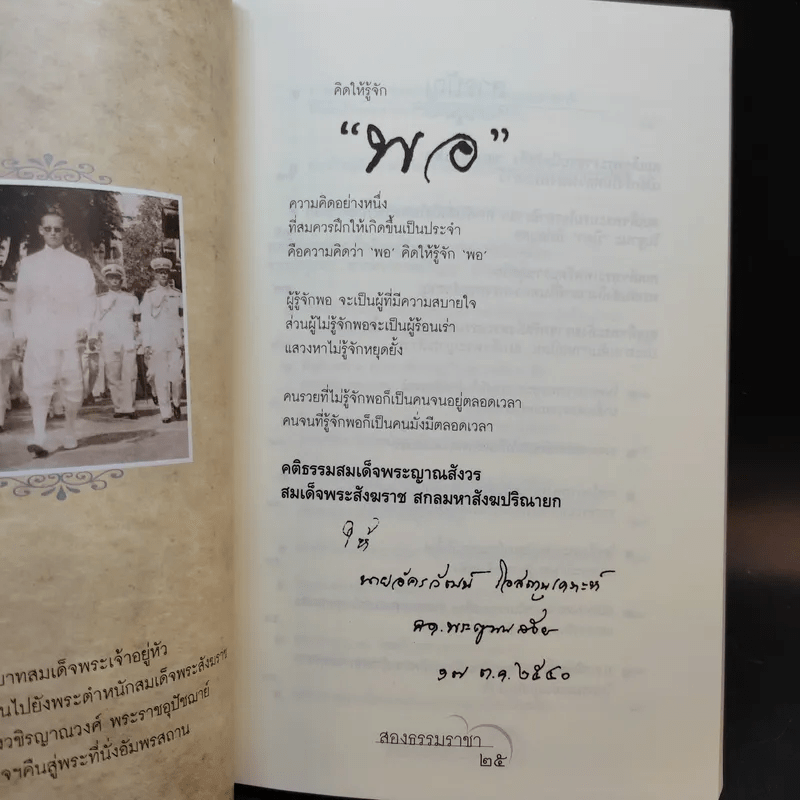 บาทสมเด็จพระเจ้าอยู่หัว
นไปยังพระตำหนักสมเด็จพระสังฆราช
งวชิรญาณวงศ์ พระราชอุปัชฌาย์
จฯคืนสู่พระที่นั่งอัมพรสถาน
คิดให้รู้จัก
“พอ”
ความคิดอย่างหนึ่ง
ที่สมควรฝึกให้เกิดขึ้นเป็นประจำ
คือความคิดว่า ‘พอ’ คิดให้รู้จัก ‘พอ’
ผู้รู้จักพอ จะเป็นผู้ที่มีความสบายใจ
ส่วนผู้ไม่รู้จักพอจะเป็นผู้ร้อนเร่า
แสวงหาไม่รู้จักหยุดยั้ง
คนรวยที่ไม่รู้จักพอก็เป็นคนจนอยู่ตลอดเวลา
คนจนที่รู้จักพอก็เป็นคนมั่งมีตลอดเวลา
คติธรรมสมเด็จพระญาณสังวร
สมเด็จพระสังฆราช สกลมหาสังฆปริณายก
ให้
นายอัครวัฒน์ โอสถานุเคราะห์
๑๗ ต.ค. ๒๕๔๐
สองธรรมราชา
๒๕